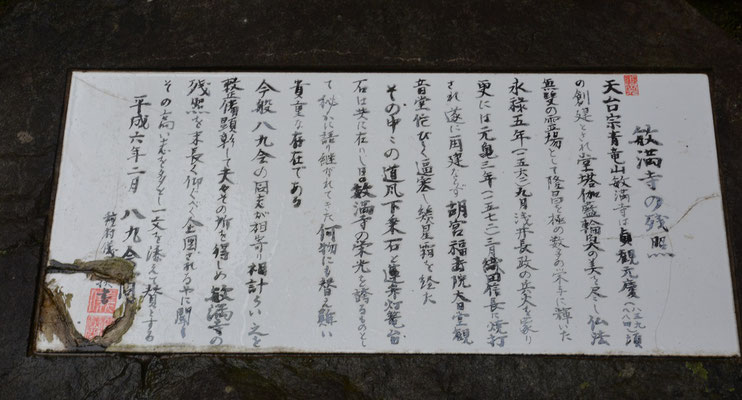 敏満寺の残照
天台宗青竜山敏満寺は貞観元慶(八五九〜八八四)頃
の創建とされ堂塔伽藍輪奐の美を尽し仏法
無双の霊場として隆昌を極め数多の栄手に輝いた
永禄五年(一五六二)九月浅井長政の兵火を蒙り
更には元亀三年(一五七二)三月織田信長に焼打
され遂に再建ならず胡宮福寿院大日堂観
音堂佗びしく逼塞し幾星霜を経た
その中この道風下乗石と蓮華灯篭台
石は共に在りし日の敏満寺の栄光を誇るものとし
て秘かに語り継がれてきた何物にも替え難い
貴重な存在である
今般八九会の同志が相寄り相計らい之を
整備顕彰して夫々その所を得しめ敏満寺の
残照を末長く仰ぐべく企図されるやに聞き
その高い志を多とし一文を湊え賛とする
平成六年二月 八九会